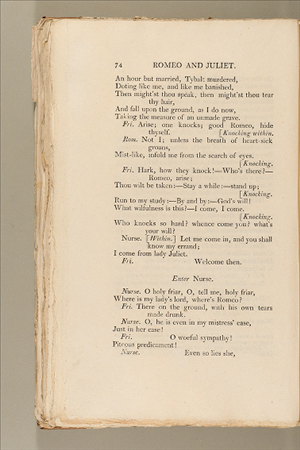 74 ROMEO AND JULIET.
An hour but married, Tybalt murdered,
Doting like me, and like me banished,
Then might'st thou speak, then might'st thou tear
thy hair,
And fall upon the ground, as I do now,
Taking the measure of an unmade grave.
Fri. Arise; one knocks; good Romeo, hide
thyself. [Knocking within.
Rom. Not I; unless the breath of heart-sick
groans,
Mist-like, infold me from the search of eyes.
[Knocking.
Fri. Hark, how they knock!—Who's there?—
Romeo, arise;
Thou wilt be taken:—Stay a while:—stand up;
[Knocking.
Run to my study:—By and by:—God's will!
What wilfulness is this!—I come, I come.
[Knocking.
Who knocks so hard? whence come you? what's
your will?
Nurse. [Within.] Let me come in, and you shall
know my errand;
I come from lady Juliet.
Fri. Welcome then.
Enter Nurse.
Nurse. O holy friar, O, tell me, holy friar,
Where is my lady's lord, where's Romeo?
Fri. There on the ground, with his own tears
made drunk.
Nurse. O, he is even in my mistress' case,
Just in her case!
Fri. O woeful sympathy!
Piteous predicament!
Nurse. Even so lies she,